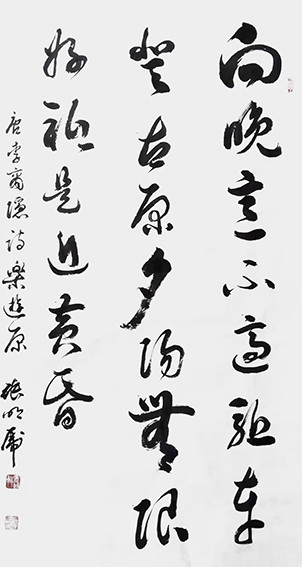 向晚意不適驅車
登古原夕陽無限
好祇是近黃昏
唐李商隱詩樂遊原